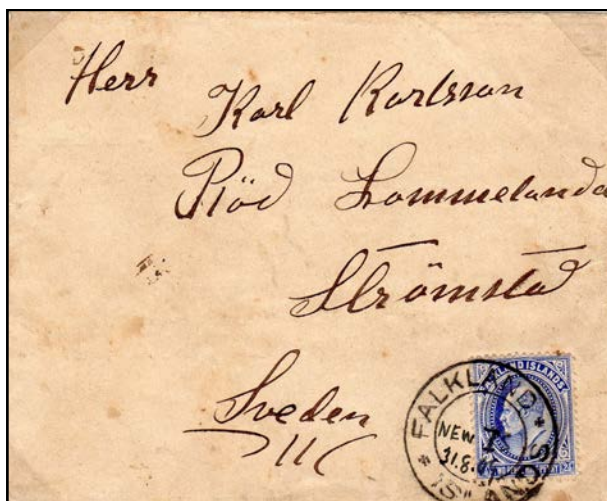 Herr
Karl Karlsson
Röd Lommelanda
Strömstad
Sveden
FALKLAND ISLANDS
NEW
31.8.